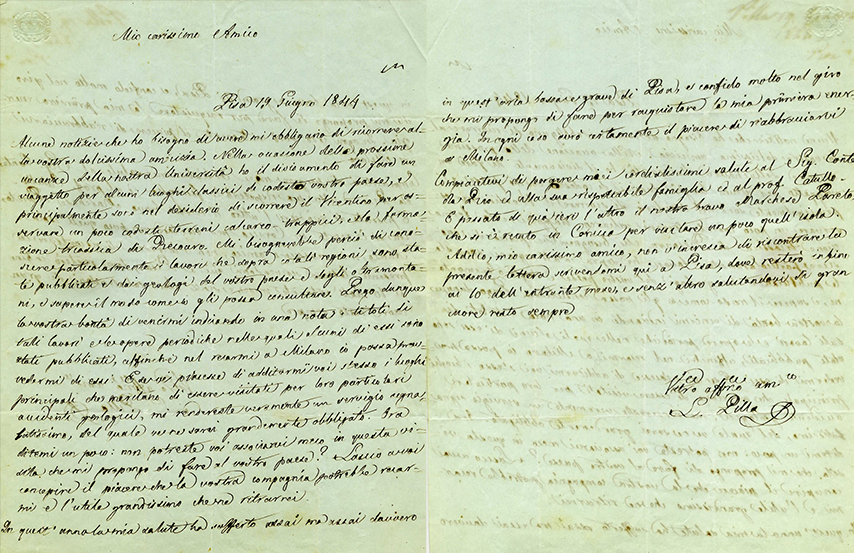 Mio carissimo Amico
Pisa 19 Giugno 1844
Alcune notizie che ho bisogno di avere mi obbligano di ricorrere al-
la vostra dolcissima amicizia. Nella occasione delle prossime
vacanze della nostra Università ho il divisamento di fare un
viaggetto per alcuni luoghi classici di codesto vostro paese, e
principalmente sono nel desiderio di scorrere il Vicentino per os-
servare un poco codesti terreni calcareo-trappici, e la forma-
zione triassica di Recoaro. Mi bisognerebbe perciò di cono-
scere particolarmente i lavori che sopra cotali regioni sono sta-
te pubblicate e dai geologi del vostro paese e dagli oltremonta-
ni, e sapere il modo come io gli possa consultare. Prego dunque
la vostra bontà di venirmi indicando in una nota i titoli di
tali lavori e le opere periodiche nelle quali alcuni di essi sono
stati pubblicati, affinchè nel recarmi a Milano io possa prov-
vedermi di essi. E se vi piacesse di additarmi voi stesso i luoghi
principali che meritano di essere visitati per loro particolari
accidenti geologici, mi rendereste veramente un servigio segna-
latissimo, del quale ve ne sarei grandemente obbligato. Ma
ditemi un poco: non potreste voi associarvi meco in questa vi-
sita che mi propongo di fare al vostro paese? Lascio a voi
concepire il piacere che la vostra compagnia potrebbe recar-
mi e l'utile grandissimo che ne ritrarrei.
In quest'anno la mia salute ha sofferto assai ma assai davvero
in quest'aria bassa e grave di Pisa, e confido molto nel giro
che mi propongo di fare per racquistare la mia primiera ener-
gia. In ogni caso avrò certamente il piacere di riabbracciarvi
a Milano.
Compiacetevi di porgere miei cordialissimi saluti al Sig. Conte
da Rio ed alla sua rispettabile famiglia ed al prof. Catullo.
È passato di qua ieri l'altro il nostro bravo Marchese Pareto,
che si è recato in Corsica per visitare un poco quell'isola.
Addio, mio carissimo amico, non v'incresca di riscontrare la
presente lettera scrivendomi qui a Pisa, dove resterò infino
ai 10 dell'entrante mese, e senz'altro salutandovi di gran
cuore resto sempre
Vostro affmo amico
L. Pilla